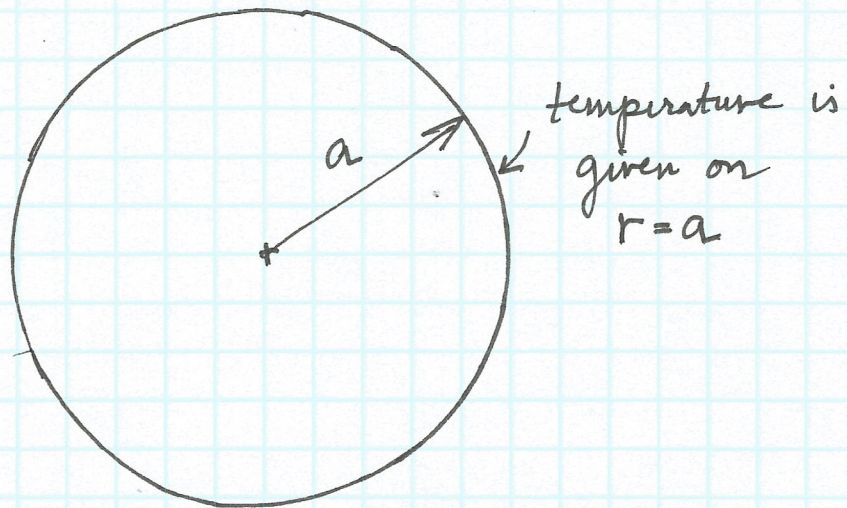 a
temperature is
given on
r = a